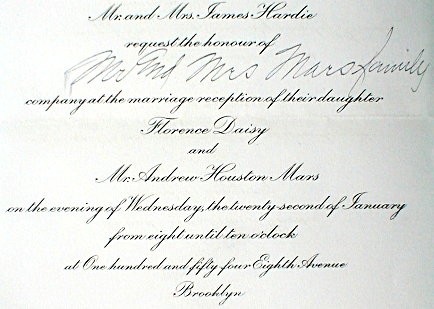 Mr. and Mrs. James Hardie
request the honour of
Mr and Mrs Mars family
company at the marriage reception of their daughter
Florence Daisy
and
Mr. Andrew Houston Mars
on the evening of Wednesday, the twenty-second of January
from eight until ten o'clock
at One hundred and fifty-four Eighth Avenue
Brooklyn